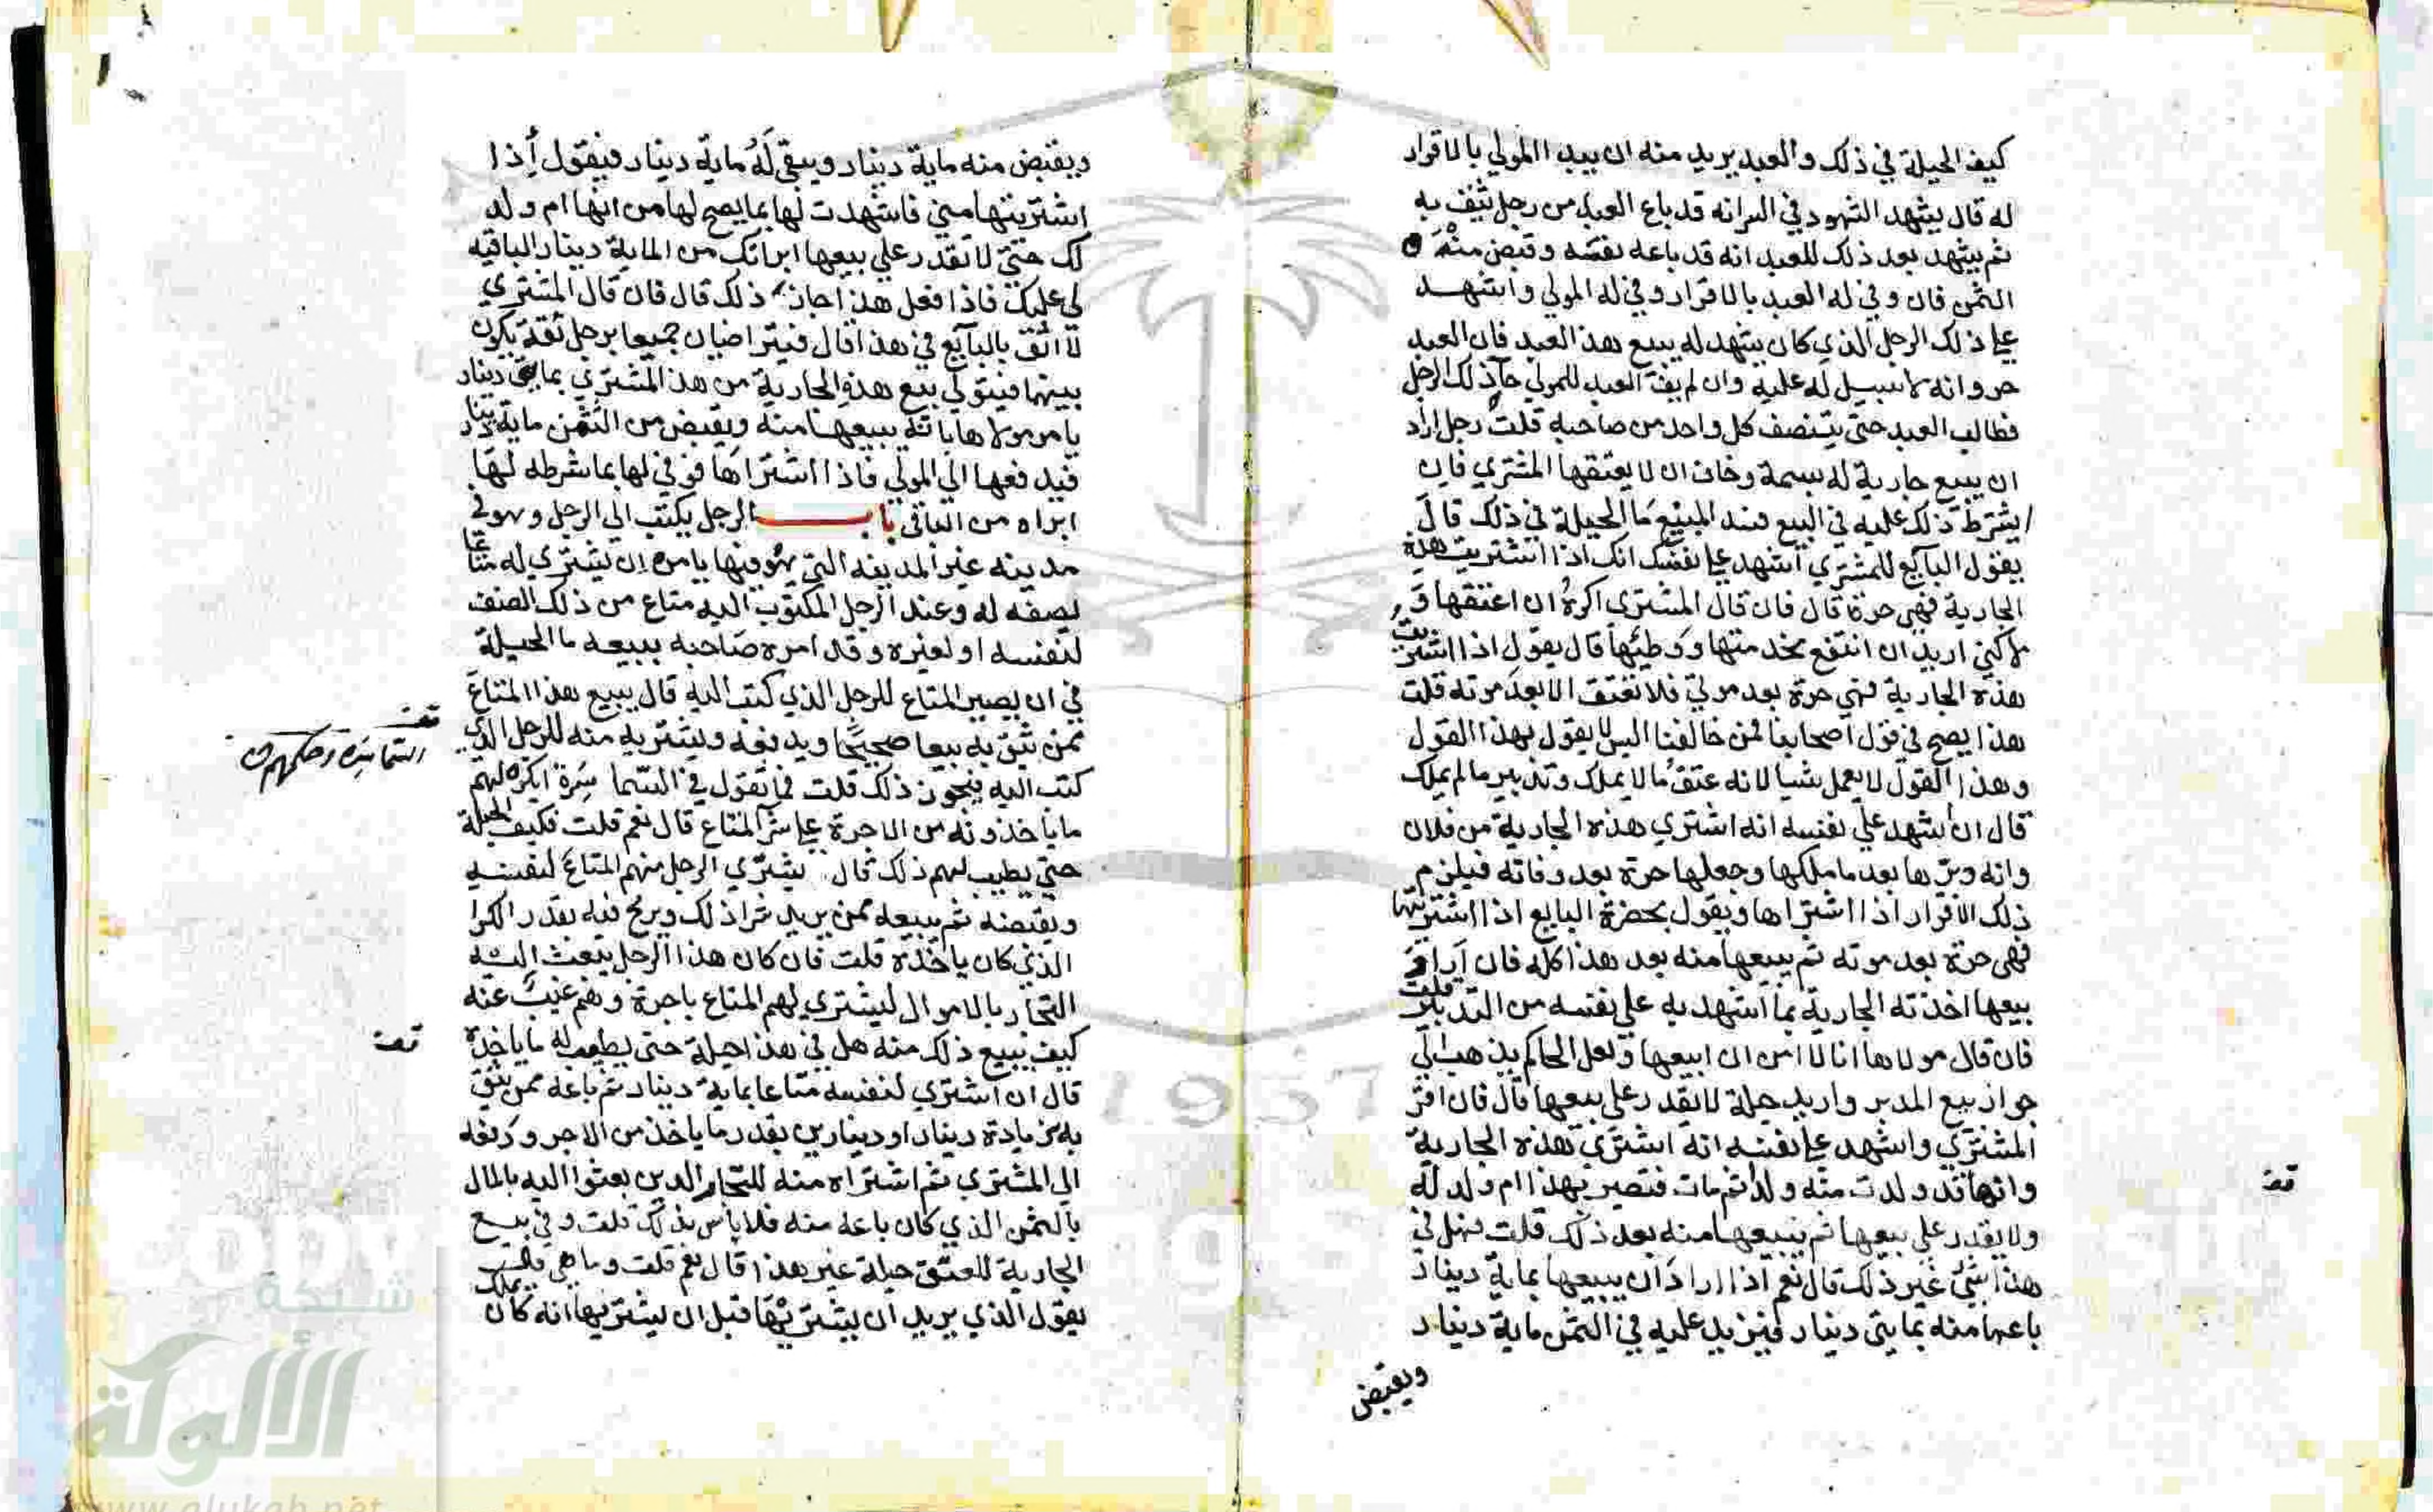 كيف الحيلة في ذلك والعبد يريد منه ان يبدا المولي بالاقرار
له قال يشهد الشهود في السر انه قد باع العبد من رجل يثق به
ثم يشهد بعد ذلك للعبد انه قد باعه نفسه وقبض منه
الثمن فان وفي له العبد بالاقرار وفي له المولي واشهد
علي ذلك الرجل الذي كان يشهد له ببيع هذا العبد فان العبد
حر وانه لا سبيل له عليه وان لم يف العبد للمولي جآ ذلك الرجل
فطالب العبد حتى يتنصف كل واحد من صاحبه قلت رجل اراد
ان يبيع جارية له بسمة وخاف ان لا يعتقها المشتري فان
اشترط ذلك عليه في البيع فسد المبيع ما الحيلة في ذلك قال
يقول البآئع للمشتري اشهد علي نفسك انك اذا اشتريت هذه
الجارية فهي حرة قال فان قال المشتري اكره ان اعتقها و
لاكني اريد ان انتفع بخدمتها ووطئها قال يقول اذا اشتريت
هذه الجارية فهي حرة بعد موتي فلا تعتق الا بعد موته قلت
هذا يصح في قول اصحابنا فمن خالفنا اليس لا يقول بهذا القول
وهذا القول لا يعمل شيا لانه عتق ما لا يملك وتدبير ما لم يملك
قال ان اشهد علي نفسه انه اشتري هذه الجارية من فلان
وانه دبرها بعد ما ملكها وجعلها حرة بعد وفاته فيلزم
ذلك الاقرار اذا اشتراها ويقول بحضرة البايع اذا اشتريتها
فهي حرة بعد موته ثم يبيعها منه بعد هذا كله فان اراد
بيعها اخذته الجارية بما اشهد به علي نفسه من التدبير قلت
فان قال مولاها انا لا امن ان ابيعها ولعل الحاكم يذهب الي
جواز بيع المدبر واريد حيلة لا يقدر علي بيعها قال فان اقر
المشتري واشهد علي نفسه انه اشتري هذه الجارية
وانها قد ولدت منه ولدا ثم مات فتصير بهذا ام ولد له
ولا يقدر علي بيعها ثم يبيعها منه بعد ذلك قلت فهل في
هذا شئ غير ذلك قال نعم اذا اراد ان يبيعها بماية دينار
باعها منه بمايتي دينار فيزيد عليه في الثمن ماية دينار
ويقبض
قف
ويقبض منه ماية دينار ويبقى له ماية دينار فيقول اذا
اشتريتها مني فاشهدت لها بما يصح لها من انها ام ولد
لك حتي لا تقدر علي بيعها ابراتك من الماية دينار الباقيه
لي عليك فاذا فعل هذا جاز ذلك قال فان قال المشتري
لا اثق بالبآئع في هذا قال فيتراضيان جميعا برجل ثقة يكون
بينهما فيتولي بيع هذه الجارية من هذا المشتري بمايتي دينار
يامر مولاها بانه يبيعها منه ويقبض من الثمن ماية دينار
فيدفعها الي المولي فاذا اشتراها فوفي لها بما شرطه لها
ابراه من الباقي باب الرجل يكتب الي الرجل وهو في
مدينه غير المدينه التي هو فيها يامره ان يشتري له متاعا
يصفه له وعند الرجل المكتوب اليه متاع من ذلك الصنف
لنفسه او لغيره وقد امره صاحبه ببيعه ما الحيلة
في ان يصير المتاع للرجل الذي كتب اليه قال يبيع هذا المتاع
ممن يثق به بيعا صحيحا ويدفعه ويشتريه منه للرجل الذي
كتب اليه فيجوز ذلك قلت فما تقول في السماسرة ايكره لهم
ما ياخذونه من الاجرة علي شرآ المتاع قال نعم قلت فكيف الحيلة
حتي يطيب لهم ذلك قال يشتري الرجل منهم المتاع لنفسه
ويقبضه ثم يبيعه ممن يريد شرا ذلك ويربح فيه بقدر الكرا
الذي كان ياخذه قلت فان كان هذا الرجل يبعث اليه
التجار بالاموال ليشتري لهم المتاع باجرة وهم غيب عنه
كيف يبيع ذلك منه هل في هذا حيلة حتى يطيب له ما ياخذه
قال ان اشتري لنفسه متاعا بماية دينار ثم باعه ممن يثق
به بزيادة دينار او دينارين بقدر ما ياخذ من الاجر ودفعه
الي المشتري ثم اشتراه منه للتجار الدين بعثوا اليه بالمال
بالثمن الذي كان باعه منه فلا باس بذلك قلت وفي بيع
الجارية للعتق حيلة غير هذا قال نعم قلت وما هي قلت
يقول الذي يريد ان يشتريها قبل ان يشتريها انه كان يملك
قف
السماسرة وحكمهم
قف
شبكة
الألوكة
www.alukah.net
1957